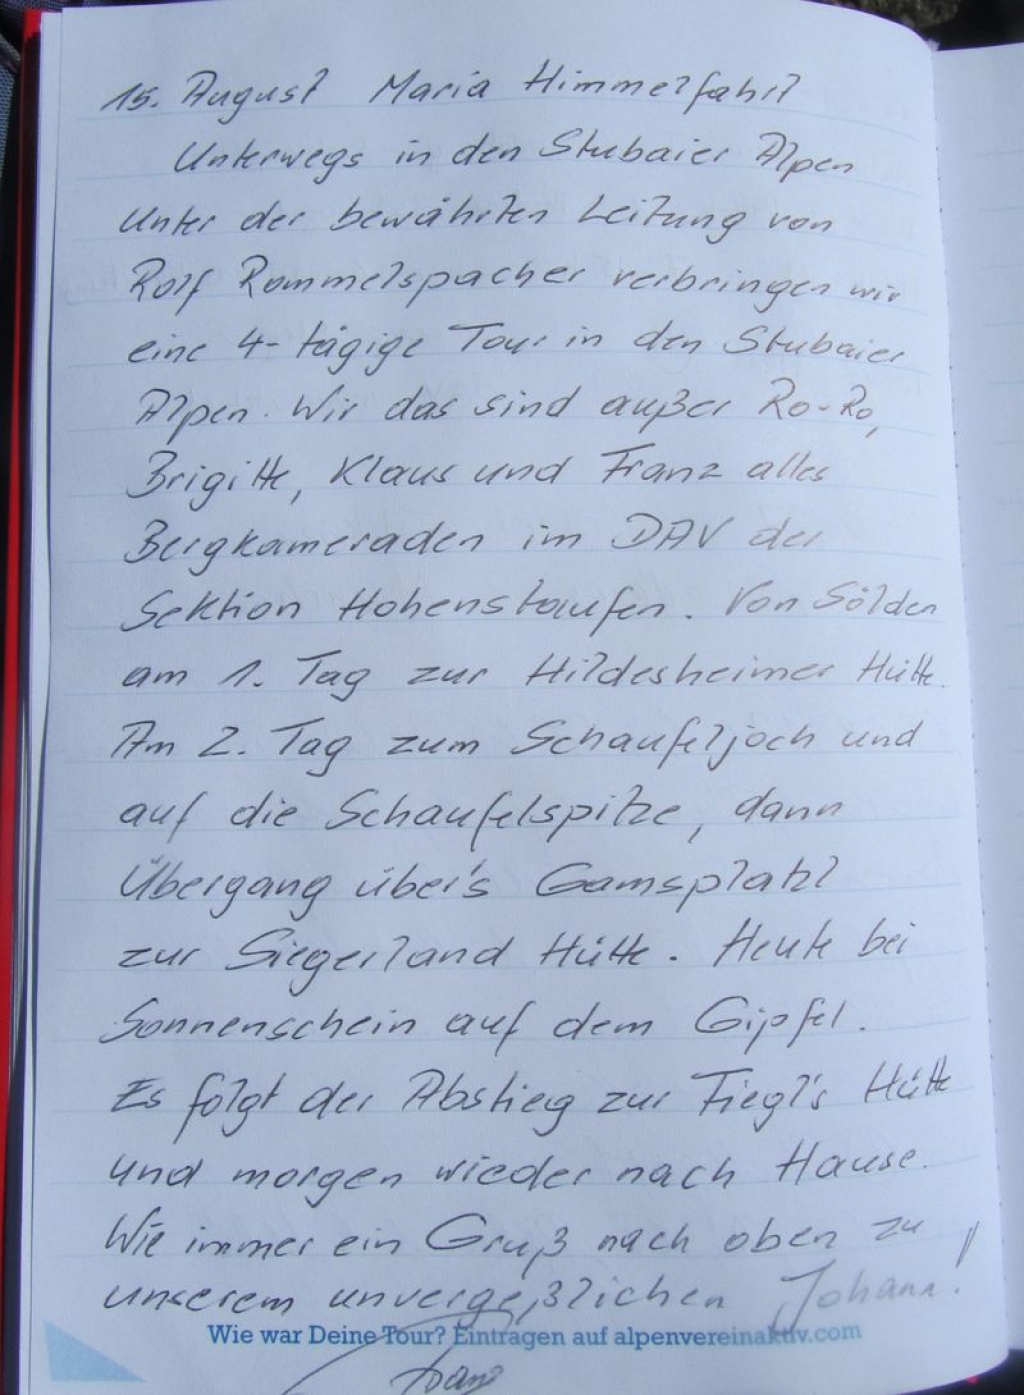 15. August Maria Himmelfahrt
Unterwegs in den Stubaier Alpen
Unter der bewährten Leitung von
Rolf Rommelspacher verbringen wir
eine 4-tägige Tour in den Stubaier
Alpen. Wir das sind außer Ro-Ro,
Brigitte, Klaus und Franz alles
Bergkameraden im DAV der
Sektion Hohenstaufen. Von Sölden
am 1. Tag zur Hildesheimer Hütte.
Am 2. Tag zum Schaufeljoch und
auf die Schaufelspitze, dann
Übergang über's Gamsplatzl
zur Siegerland Hütte. Heute bei
Sonnenschein auf dem Gipfel.
Es folgt der Abstieg zur Fiegl's Hütte
und morgen wieder nach Hause.
Wie immer ein Gruß nach oben zu
unserem unvergeßlichen Johann!
Wie war Deine Tour? Eintragen auf alpenvereinaktiv.com